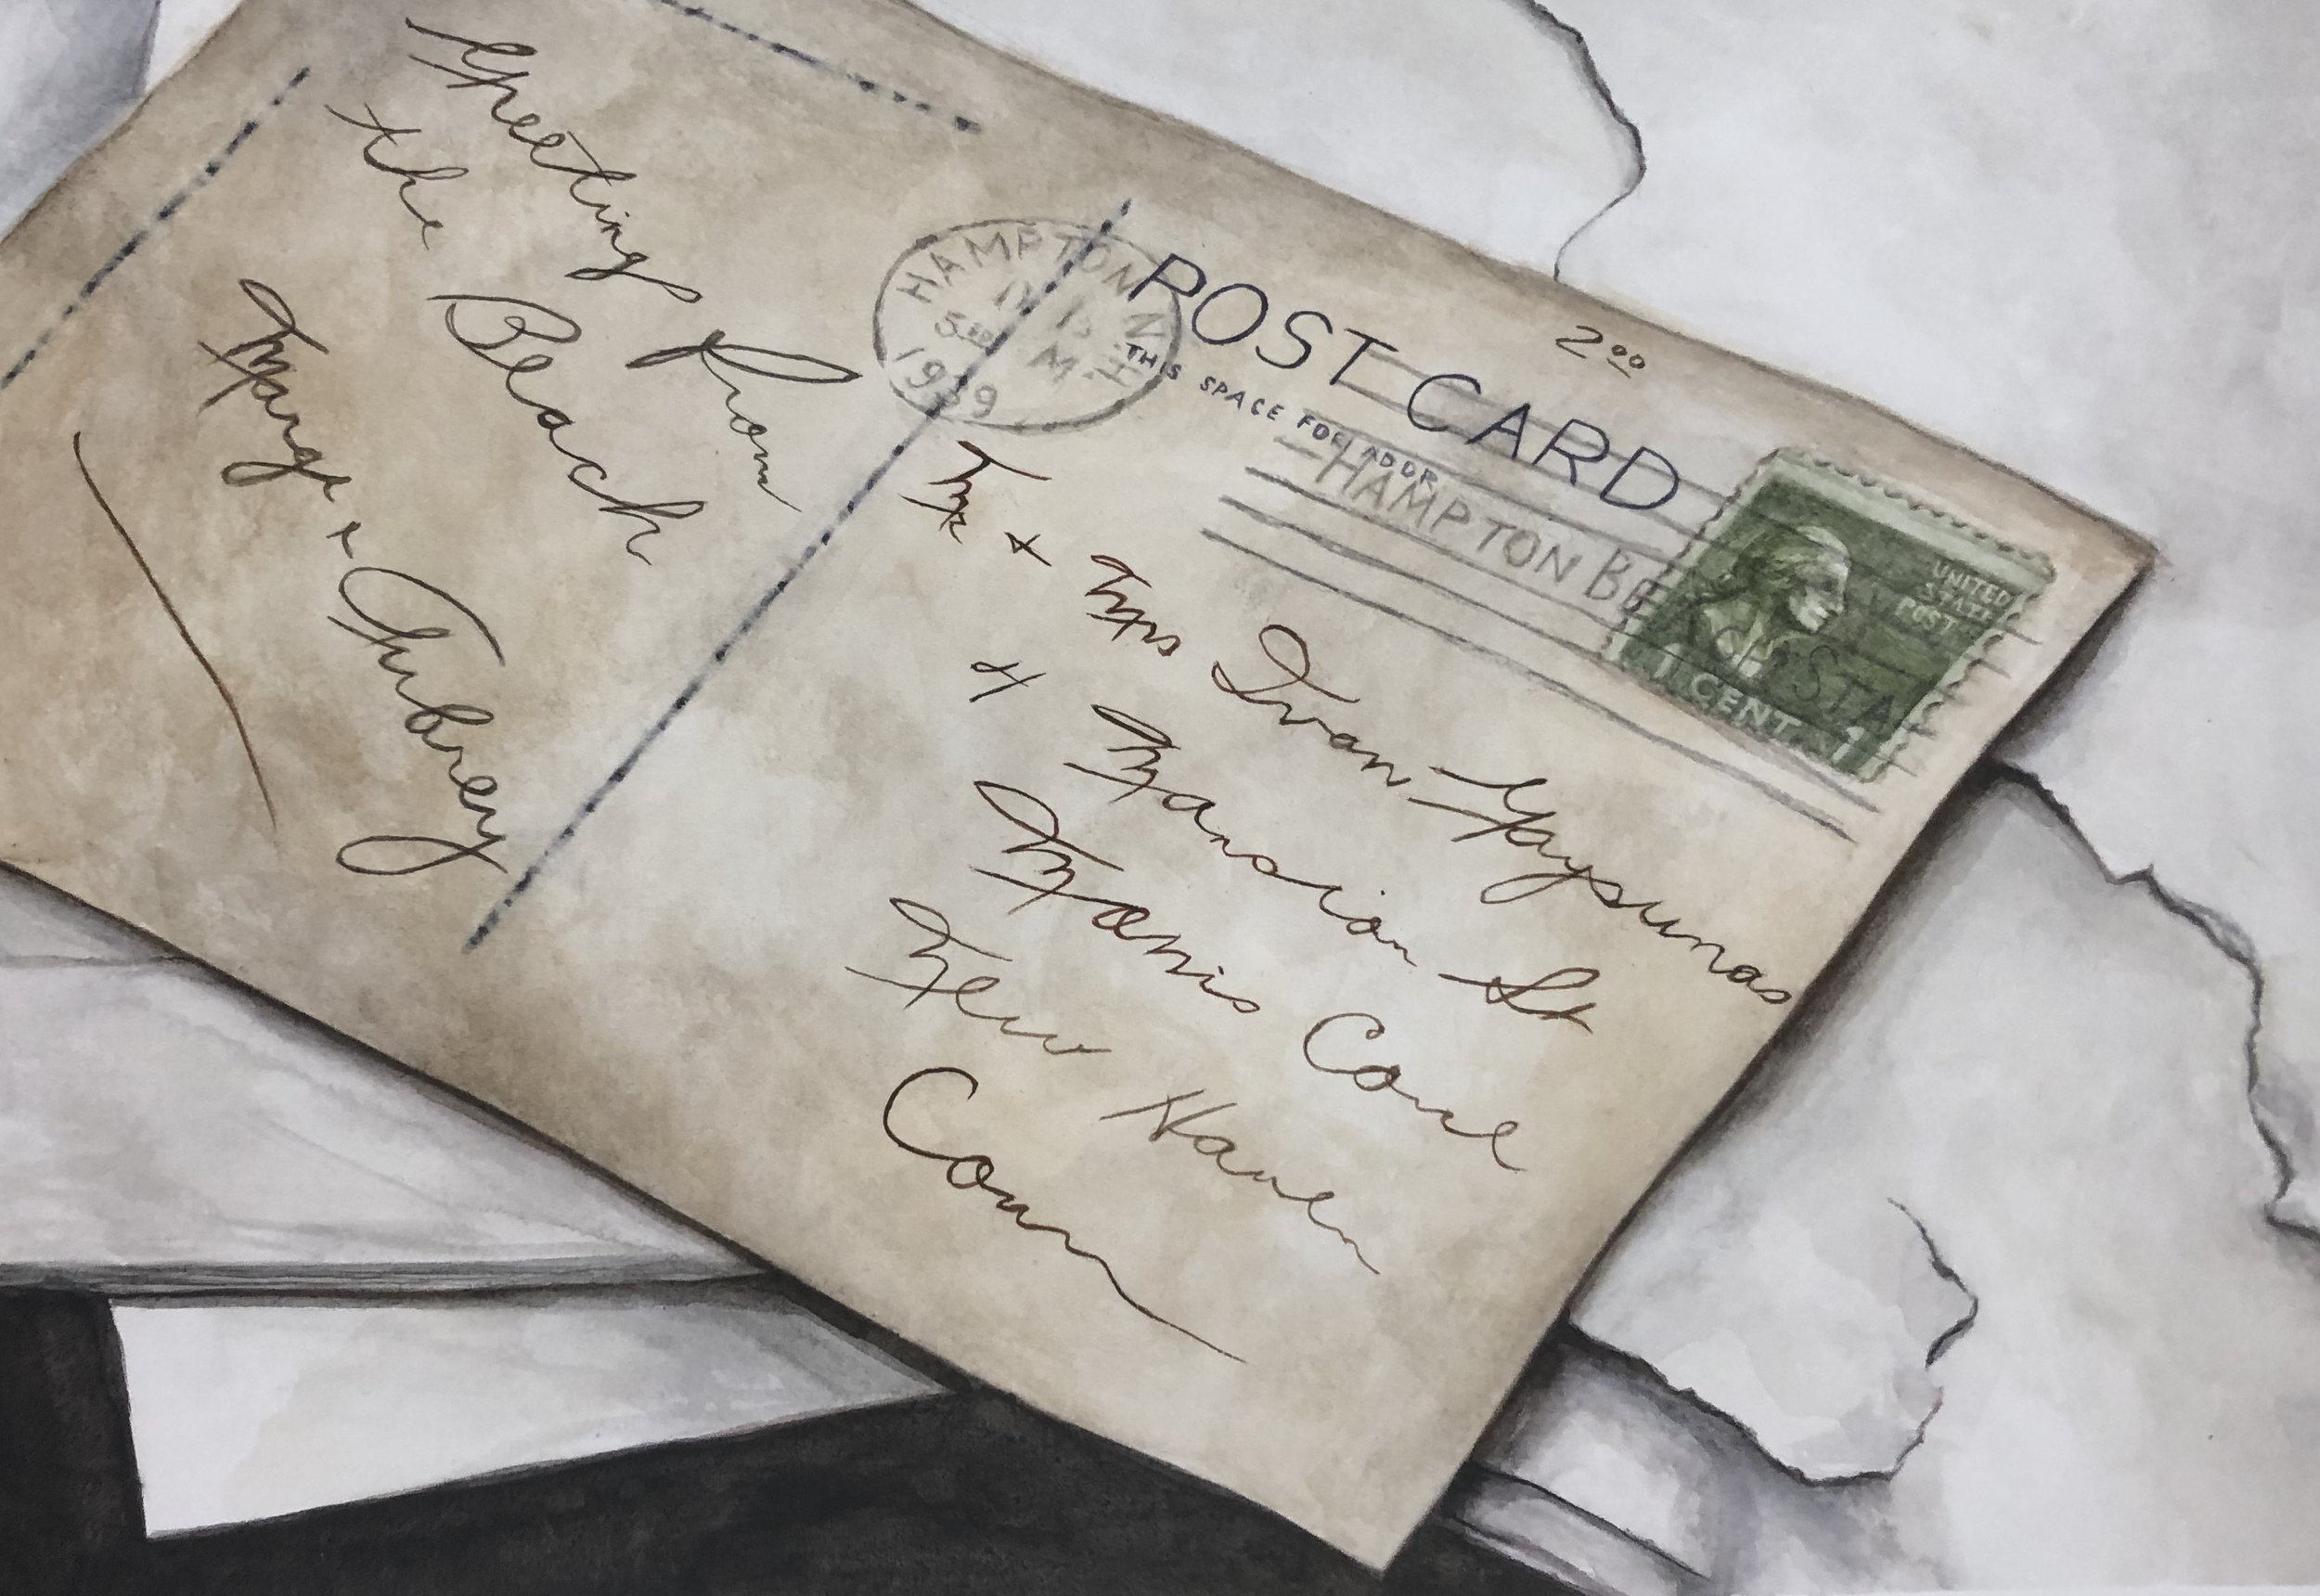 Greetings from
the Beach
Marge + Aubrey
HAMPTON
N.H.
5:30 M
1939
POST CARD
THIS SPACE FOR ADDR
2 00
HAMPTON BEACH STA
UNITED
STATES
POST
1 CENT 1
Mr + Mrs Ivan Gaysunas
4 Mansion St
Morris Cove
New Haven
Conn